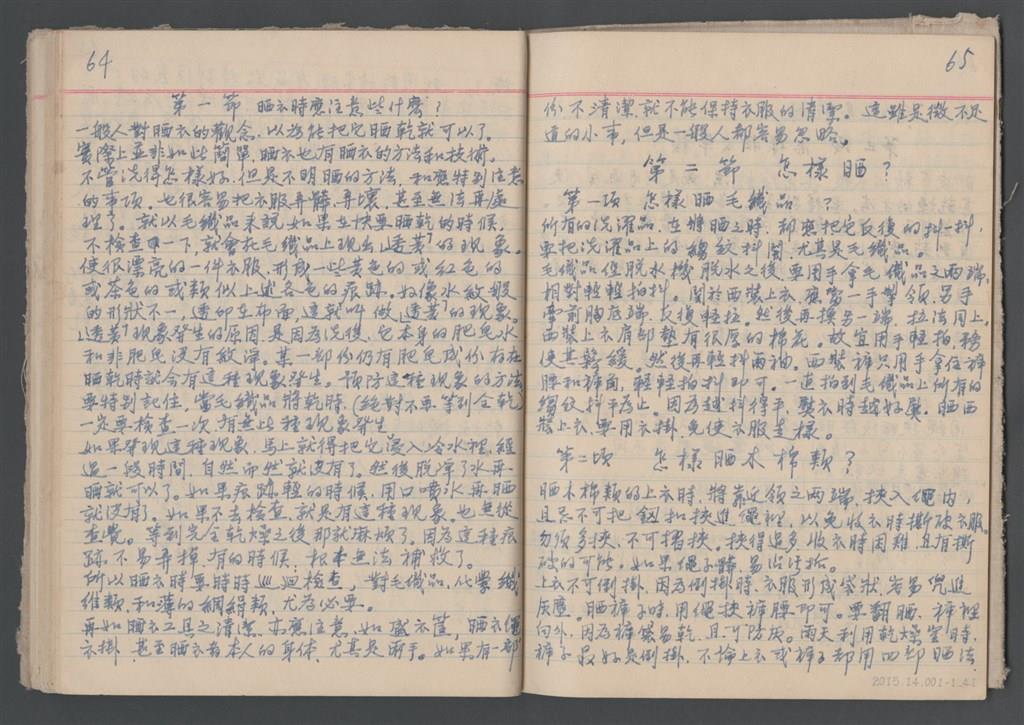 64
第一節 晒衣時應注意些什麽?
一般人對晒衣的觀念,以為能把它晒乾就可以了。
實際上並非如此簡單,晒衣也有晒衣的方法和技術,
不管洗得怎樣好,但是不明晒的方法,和應特別注意
的事項,也很容易把衣服弄髒,弄壞,甚至無法再處
理了。就以毛織品來說,如果在快要晒乾的時候,
不檢查一下,就會在毛織品上現出「透芽」的現象。
使很漂亮的一件衣服,形成一些黃色的或紅色的
或茶色的或類似上述各色的痕跡。好像水紋般
的形狀不一,透印在布面,這就叫做「透芽」的現象。
「透芽」現象發生的原因,是因為洗後,它本身的肥皂水
和非肥皂沒有敨淨。某一部份仍有肥皂成份存在
晒乾時就會有這種現象發生。預防這種現象的方法
要特別記住,當毛織品將乾時,(絕對不要等到全乾)
一定要檢查一次,有無此種現象發生
如果發現這種現象,馬上就得把它浸入冷水裡,經
過一般時間,自然而然就沒有了。然後脫淨了水再
晒就可以了。如果痕跡輕的時候,用口噴水再晒
就沒有了。如果不去檢查,就是有這種現象,也無從
查覺。等到完全乾燥之後那就麻煩了。因為這種痕
跡,不易弄掉,有的時候,根本無法補救了。
所以晒衣時要時時巡迴檢查,對毛織品,化學纖
維類,和薄的綢絹類,尤為必要。
再如晒衣工具之清潔,亦應注意,如盛衣筐,晒衣繩
衣掛,甚至晒衣者本人的身体,尤其是兩手。如果有一部
65
份不清潔,就不能保持衣服的清潔。這雖是微不足
道的小事,但是一般人都容易忽略。
第二節 怎樣晒?
第一項 怎樣晒毛織品?
所有的洗濯品,在晒之時,都要把它反復的抖一抖,
要把洗濯品上的縐紋抖開,尤其是毛織品。
毛織品從脫水機脫水之後,要用手拿毛織品之兩端,
相對輕輕拍抖。關於西裝上衣,應當一手擎領,另手
拿前胸底端,反復輕拉。然後再換另一端,拉法同上。
西裝上衣肩部墊有很厚的棉花。故宜用手輕拍,務
使其鬆緩。然後再輕抖兩袖。西裝褲只用手拿住褲
腰和褲角,輕輕拍抖即可。一直拍到毛織品上所有的
縐紋抖平為止。因為越抖得平,熨衣時越好熨。晒西
裝上衣,要用衣掛,免使衣服走樣。
第二項 怎樣晒木棉類?
晒木棉類的上衣時,將靠近領之兩端,挾入繩內,
且忌不可把鈕扣挾進繩裡,以免收衣時撕破衣服。
勿須多挾,不可摺挾。挾得過多,收衣時困難,且有撕
破的可能。如果繩子髒,易沾汙垢。
上衣不可倒掛,因為倒掛時,衣服形成袋狀,容易兜進
灰塵。晒褲子時,用繩挾褲腰即可。要翻晒,褲裡
向外,因為褲袋易乾,且可防灰。雨天利用乾燥室時,
褲子最好是倒掛,不論上衣或褲子都用四部晒法
2015.14.001-1_41